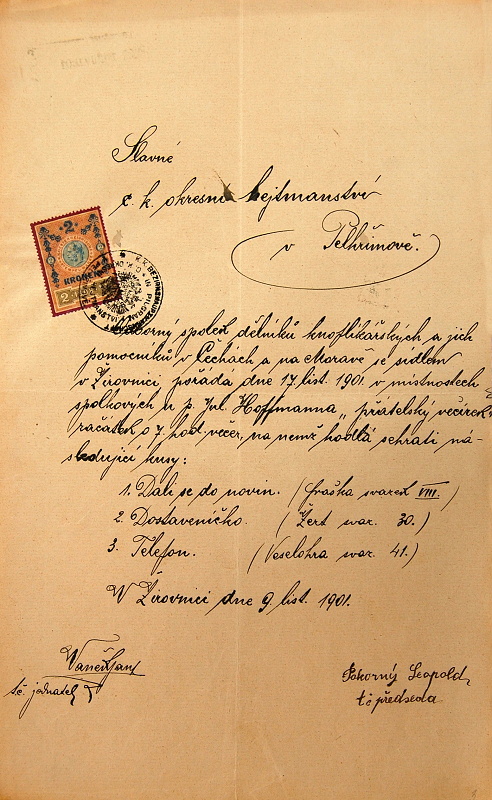 Slavné
c. k. okresní hejtmanství
v Pelhřimově.
2
KRONEN
2
K.K. BEZIRKSHAUPTMANNSCHAFT IN PILGRAM
Odborný spolek dělníků knoflikářských a jich
pomocníků v Čechách a na Moravě se sídlem
v Žirovnici, pořádá dne 17. list. 1901 v místnostech
spolkových u p. Jul. Hoffmanna „přátelský večírek"
začátek o 7 hod. večer, na němž hodlá sehrati ná-
sledující kusy:
1. Dali se do novin. (fraška svazek VIII.)
2. Dostaveníčko. (Žert svaz. 30.)
3. Telefon. (Veselohra svaz. 41.)
W Žirovnici dne 9. list. 1901.
Vaněk Jan
t.č. jednatel
Pokorný Leopold
t č předseda